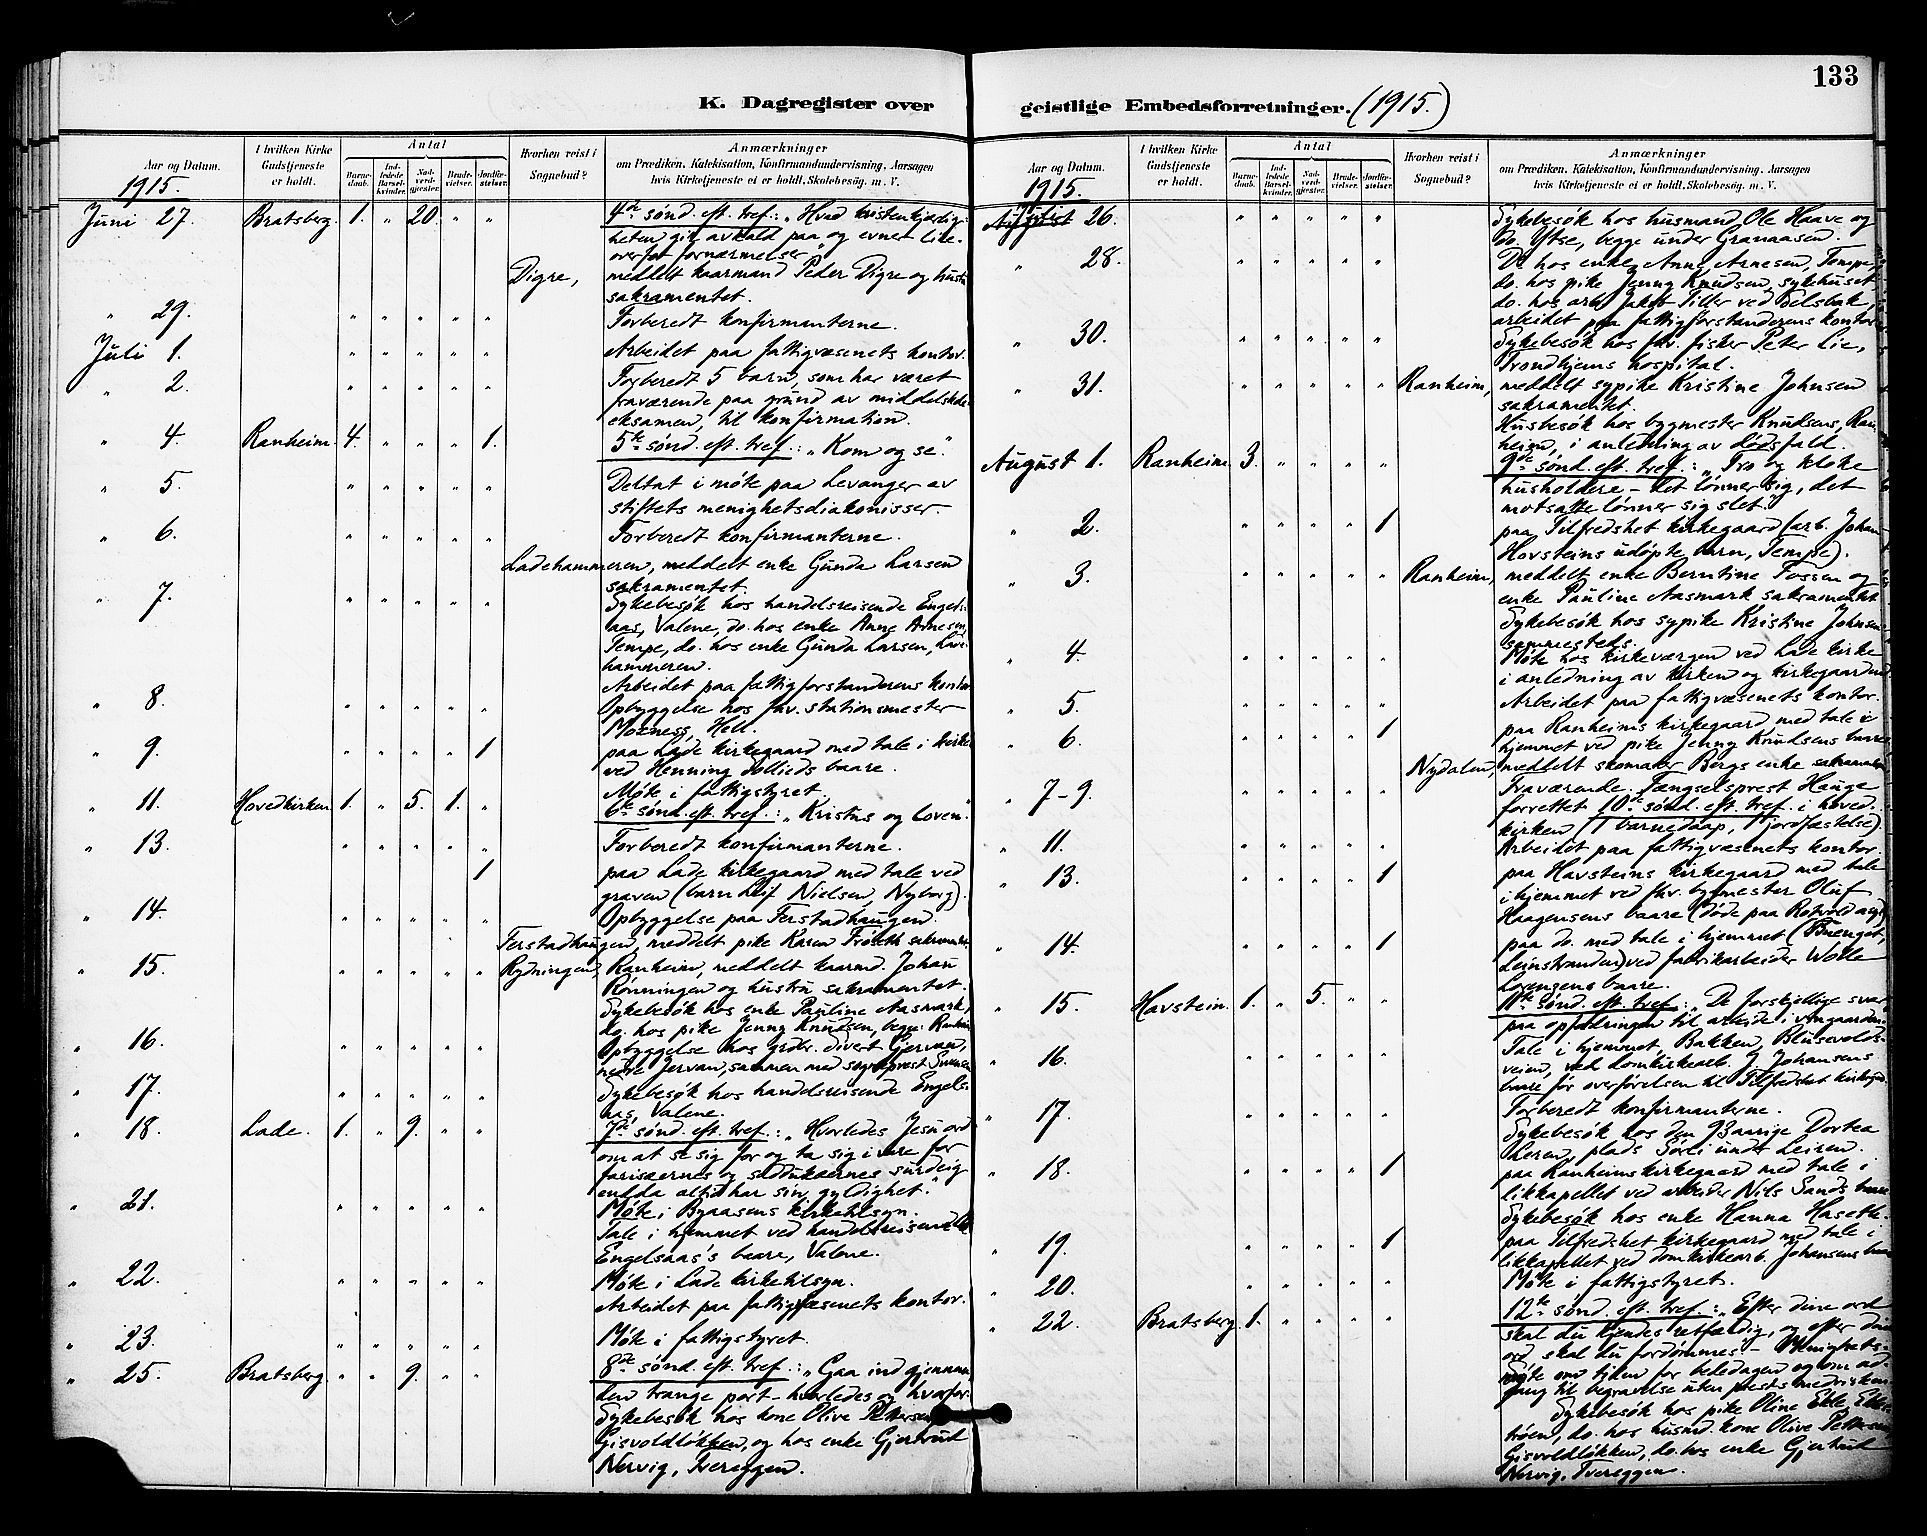 133
K. Dagregister over geistlige Embedsforretninger. (1915.)
Aar og Datum.
I hvilken Kirke Gudstjeneste er holdt.
Antal
Barnedaab.
Indledede Barselkvinder.
Nadverdgjester.
Brudevielser.
Jordfæstelser.
Hvorhen reist i Sognebud?
Anmærkninger
om Prædiken, Katekisation, Konfirmandundervisning, Aarsagen
hvis Kirketjeneste ei er holdt, Skolebesøg. m. V.
1915.
Juni 27. Bratsberg. 1. " 20. " " 4de sønd. eft. tref.: "Hvad kristenkjærlig-
heten gir avkald paa og evner like-
overfor fornærmelser"
Digre, meddelt kaarmand Peder Digre og hustru
sakramentet.
" 29. " " " " " Forberedt konfirmanterne.
Juli 1. " " " " " Arbeidet paa fattigvæsenets kontor.
" 2. " " " " " Forberedt 5 barn, som har været
fraværende paa grund av middelskole-
eksamen, til konfirmation.
" 4. Ranheim. 4. " " " 1. 5te sønd. eft. tref.: "Kom og se."
" 5. " " " " " Deltat i møte paa Levanger av
stiftets menighetsdiakonisser
" 6. " " " " " Forberedt konfirmanterne.
Ladehammeren, meddelt enke Gunda Larsen
sakramentet.
" 7. " " " " " Sykebesøk hos handelsreisende Engels-
aas, Valene, do. hos enke Anne Arnesen,
Tempe, do. hos enke Gunda Larsen, Lade-
hammeren.
Arbeidet paa fattigforstanderens kontor
" 8. " " " " " Opbyggelse hos fhv. stationsmester
Moxness, Hell.
" 9. " " " " 1 paa Lade kirkegaard med tale i kirken
ved Henning baare.
Møte i fattigstyret.
" 11. Hovedkirken 1. " 5. 1. " 6te sønd. eft. tref.: "Kristus og loven."
" 13. " " " " " Forberedt konfirmanterne.
1 paa Lade kirkegaard med tale ved
graven (barn Leif Nielsen, Nyborg).
" 14. " " " " " Opbyggelse paa Ferstadhaugen.
Ferstadhaugen, meddelt pike Karen Frøseth sakrament.
" 15. " " " " " Rydningen, Ranheim, meddelt kaarmd. Johan
Rønningen og hustru sakramentet.
Sykebesøk hos enke Pauline Aasmark,
do. hos pike Jenny Knudsen, begge Ranheim
" 16. " " " " " Opbyggelse hos grdbr. Sivert Gjervan,
nedre Jervan, sammen med sogneprest Svensen
" 17. " " " " " Sykebesøk hos handelsreisende Engels-
aas, Valene.
" 18. Lade. 1. " 9. " " 7de sønd. eft. tref.: "Hvorledes Jesu ord
om at se sig for og ta sig i vare for
farisæernes og saddukæernes surdeig
endda altid har sin gyldighet."
" 21. " " " " " Møte i Byaasens kirketilsyn.
Tale i hjemmet ved handelsreisende
Engelsaas's baare, Valene.
" 22. " " " " " Møte i Lade kirketilsyn.
Arbeidet paa fattigvæsenets kontor.
" 23. " " " " " Møte i fattigstyret.
" 25. Bratsberg " " 9. " " 8de sønd. eft. tref.: "Gaa ind gjennem
den trange port – hvorledes og hvorfor.
Sykebesøk hos kone Olive Pettersen,
Gisvoldløkken, og hos enke Gjertrud
Nervig, Tvereggen.
Aar og Datum.
I hvilken Kirke Gudstjeneste er holdt.
Antal
Barnedaab.
Indledede Barselkvinder.
Nadverdgjester.
Brudevielser.
Jordfæstelser.
Hvorhen reist i Sognebud?
Anmærkninger
om Prædiken, Katekisation, Konfirmandundervisning, Aarsagen
hvis Kirketjeneste ei er holdt, Skolebesøg. m. V.
1915.
August Juli 26. " " " " " Sykebesøk hos husmand Ole Haave og
do. Ytse, begge under Granaasen.
" 28. " " " " " Do hos enke Anne Arnesen, Tempe,
do. hos pike Jenny Knudsen, sykehuset
do. hos arb. Jakob Tiller ved Selsbak,
arbeidet paa fattigforstanderens kontor
" 30. " " " " " Sykebesøk hos fhv. fisker Peter Lie,
Trondhjems hospital.
" 31. " " " " " Ranheim, meddelt sypike Kristine Johnsen
sakramentet.
Husbesøk hos bygmester Knudsens, Ran-
heim, i anledning av dødsfald.
August 1. Ranheim. 3. " " " " 9de sønd. eft. tref.: "Tro og kloke
husholdere – det lønner sig, det
motsatte lønner sig slet."
" 2. " " " " 1 paa Tilfredshet kirkegaard (arb. Johan
Hovsteins udøpte barn, Tempe).
" 3. " " " " " Ranheim, meddelt enke Berntine Fossen og
enke Pauline Aasmark sakramentet
Sykebesøk hos sypike Kristine Johnsen
sammesteds.
" 4. " " " " " Møte hos kirkeværgen ved Lade kirke
i anledning av kirken og kirkegaarden
" 5. " " " " " Arbeidet paa fattigvæsenets kontor.
" 6. " " " " 1 paa Ranheims kirkegaard med tale i
hjemmet ved pike Jenny Knudsens baare
Nydalen, meddelt skomaker Bergs enke sakramentet
" 7–9. Fraværende. Fængselsprest Hauge
forrettet 10de sønd. eft. tref. i hoved-
kirken (1 barnedaap, 1 jordfæstelse).
" 11. " " " " " Arbeidet paa fattigvæsenets kontor.
" 13. " " " " 1 paa Havsteins kirkegaard med tale
i hjemmet ved fhv. bygmester Oluf
Haagensens baare (døde paa Rotvold asyl)
" 14. " " " " 1 paa do. med tale i hjemmet (Buenget,
Leinstranden) ved fabrikarbeider Wolle
Lorenzens baare.
" 15. Havstein. 1. " 5. " " 11te sønd. eft. tref.: "De forskjellige svar
paa opfordringen til arbeide i vingaarden.
" 16. " " " " " Tale i hjemmet Bakken, Blusevolds-
veien, ved domkirkearb. J. Johansens
baare før overførelsen til Tilfredshet kirkegd.
" 17. " " " " " Forberedt konfirmanterne.
Sykebesøk hos den 93aarige Dortea
Leren, plads Sørli under Leiren.
" 18. " " " " 1 paa Ranheims kirkegaard med tale i
likkapellet ved arbeider Nils Sands baare
Sykebesøk hos enke Hanna Hasetle.
" 19. " " " " 1 paa Tilfredshet kirkegaard med tale i
likkapellet ved domkirkearb. Johansens baare
" 20. " " " " " Møte i fattigstyret.
" 22. Bratsberg. 1. " " " " 12te sønd. eft. tref.: "Efter dine ord
skal du kjendes retfærdig, og efter dine
ord skal du fordømmes." – Menighets-
møte om tiden for bededagen og om ad-
gang til begravelse uten prests medvirken
Sykebesøk hos pike Oline Ekle, Ekle-
trøen, do. hos husmd. kone Olive Pettersen
Gisvoldløkken, do. hos enke Gjertrud
Nervig, Tvereggen.